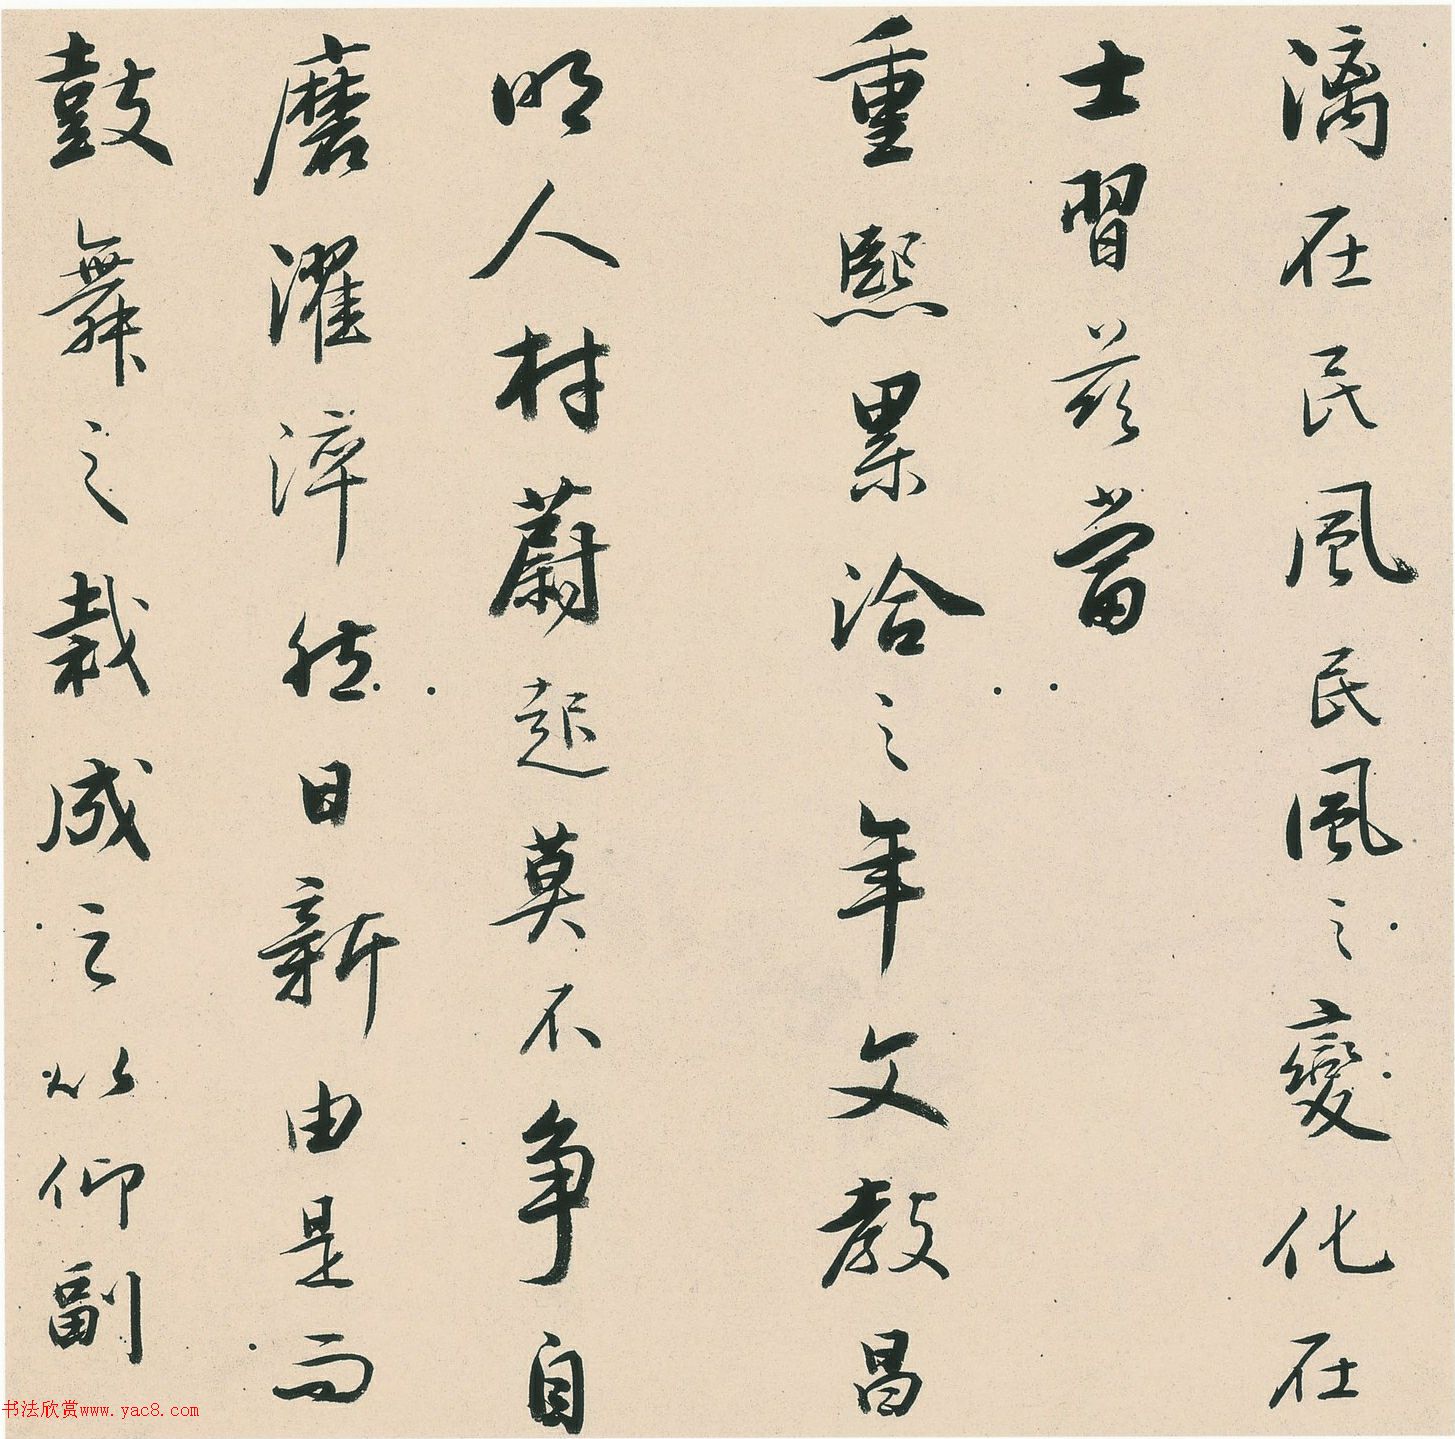 漓在民風民風之變化在
士習茲當
重熙累洽之年文教昌
明人材蔚起莫不爭自
磨濯淬然日新由是而
鼓舞之裁成之以仰副
书法欣赏www.yac8.com